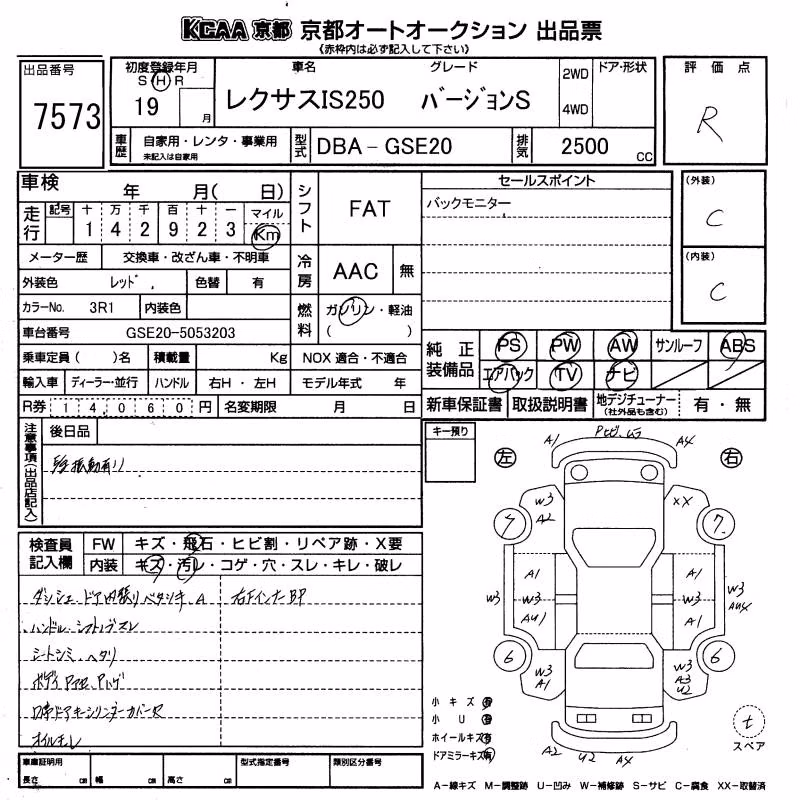 KCAA 京都 京都オートオークション 出品票
《赤枠内は必ず記入して下さい》
出品番号
7573
初度登録年月
S H R
19 月
車名 グレード
レクサスIS250 バージョンS
2WD
4WD
ドア・形状
評価点
R
車歴
自家用・レンタ・事業用
未記入は自家用
型式
DBA-GSE20
排気
2500 CC
車検 年 月( 日)
走行
記号 十 万 千 百 十 一 マイル
1 4 2 9 2 3 Km
シフト
FAT
セールスポイント
バックモニター
(外装)
C
(内装)
C
メーター歴 交換車・改ざん車・不明車
外装色 レッド 色替 有
冷房
AAC 無
カラーNo. 3R1 内装色
燃料
ガソリン・軽油
( )
車台番号 GSE20-5053203
乗車定員( )名 積載量 Kg NOX 適合・不適合
輸入車 ディーラー・並行 ハンドル 右H・左H モデル年式 年
純正装備品
PS PW AW サンルーフ ABS
エアバック TV ナビ
R券 14,060円 名変期限 月 日
新車保証書 取扱説明書 地デジチューナー (社外品も含む) 有・無
注意事項(出品店記入)
後日品
振動有り
キー預り
左
右
A1
A4
W3
A2
XX
7
7.
A1
W3
AU1
A1
W3
A1
W3
W3
AU4
6
6
W3
A1
W3
A3
U2
A2
U2
A4
t
スペア
検査員記入欄
FW キズ・飛石・ヒビ割・リペア跡・X要
内装 キズ・汚レ・コゲ・穴・スレ・キレ・破レ
ハンドル・シフトノブスレ
シートシミ、ヘタリ
オイルモレ
小キズ 有
小U 有
ホイールキズ 有
ドアミラーキズ 有
車庫証明用
長さ cm 幅 cm 高さ cm
型式指定番号
類別区分番号
A-線キズ M-調整跡 U-凹み W-補修跡 S-サビ C-腐食 XX-取替済